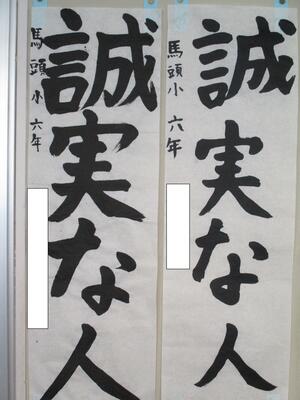 誠実な人
馬頭小 六年
誠実な人
馬頭小 六年